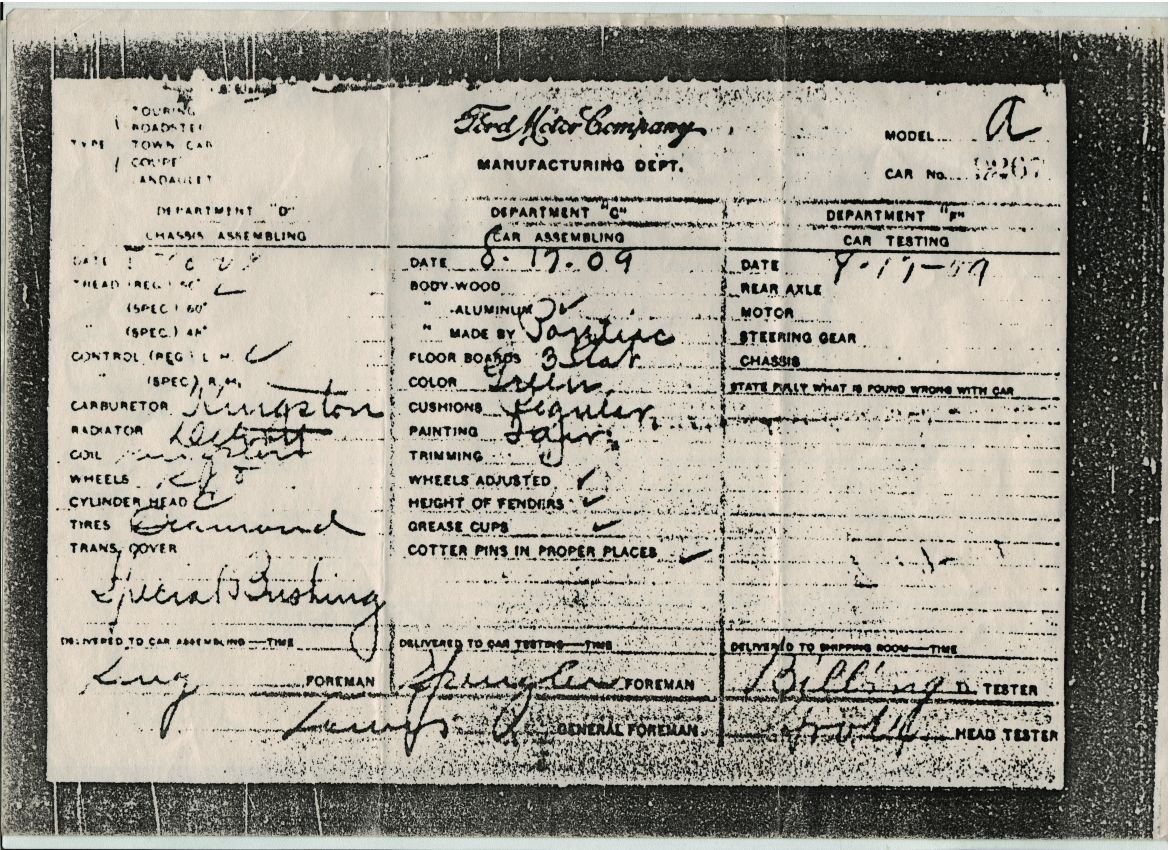 Ford Motor Company
MANUFACTURING DEPT.
MODEL a
CAR No. 9267
TYPE
TOURING
ROADSTER
TOWN CAR
COUPE
LANDAULET
DEPARTMENT "D"
CHASSIS ASSEMBLING
DATE
THEAD (REG.) 56"
(SPEC.) 60"
" (SPEC.) 48"
CONTROL (REG.) L. H. ✓
" (SPEC.) R. H.
CARBURETOR Kingston
RADIATOR Detroit
COIL
WHEELS
CYLINDER HEAD
TIRES Diamond
TRANS. COVER
Special Bushing
DELIVERED TO CAR ASSEMBLING—TIME
FOREMAN
DEPARTMENT "C"
CAR ASSEMBLING
DATE 8-17-09
BODY-WOOD
" -ALUMINUM ✓
" MADE BY Pontiac
FLOOR BOARDS 3 Slat
COLOR Green
CUSHIONS Regular
PAINTING
TRIMMING
WHEELS ADJUSTED ✓
HEIGHT OF FENDERS ✓
GREASE CUPS ✓
COTTER PINS IN PROPER PLACES ✓
DELIVERED TO CAR TESTING—TIME
Spengler FOREMAN
GENERAL FOREMAN
DEPARTMENT "F"
CAR TESTING
DATE 8-17-09
REAR AXLE
MOTOR
STEERING GEAR
CHASSIS
STATE FULLY WHAT IS FOUND WRONG WITH CAR
DELIVERED TO SHIPPING ROOM—TIME
Billings TESTER
HEAD TESTER